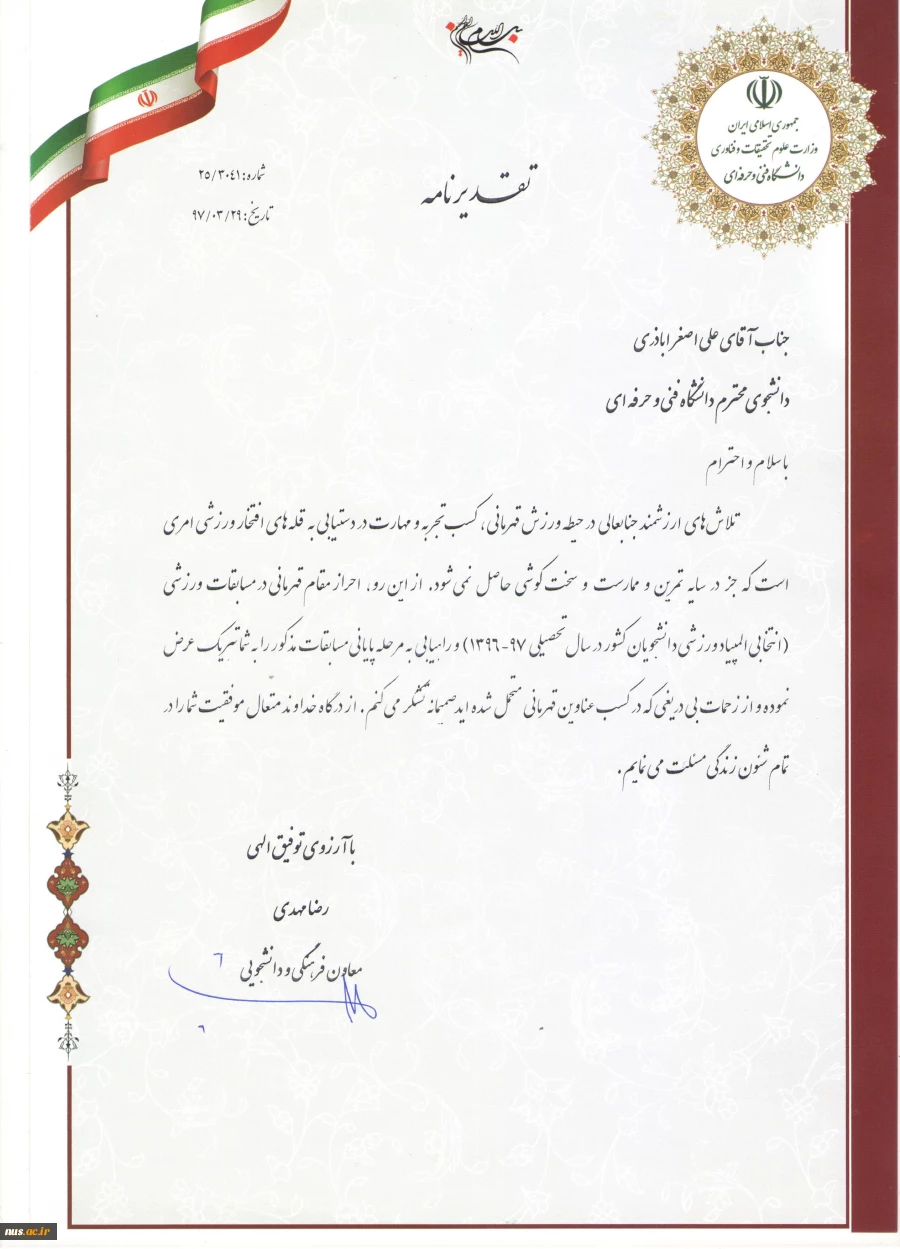 بسم الله الرحمن الرحیم
جمهوری اسلامی ایران
وزارت علوم تحقیقات و فناوری
دانشگاه فنی و حرفه‌ای
شماره: ۲۵/۳۰۴۱
تاریخ: ۹۷/۰۳/۲۹
تقدیرنامه
جناب آقای علی اصغر اباذری
دانشجوی محترم دانشگاه فنی و حرفه ای
با سلام و احترام
تلاش‌های ارزشمند جنابعالی در حیطه ورزش قهرمانی، کسب تجربه و مهارت در دستیابی به قله های افتخار ورزشی امری
است که جز در سایه تمرین و ممارست و سخت کوشی حاصل نمی شود. از این رو، احراز مقام قهرمانی در مسابقات ورزشی
(انتخابی المپیاد ورزشی دانشجویان کشور در سال تحصیلی ۹۷-۱۳۹۶) و راهیابی به مرحله پایانی مسابقات مذکور را به شما تبریک عرض
نموده و از زحمات بی دریغی که در کسب عناوین قهرمانی متحمل شده اید صمیمانه تشکر می کنم. از درگاه خداوند متعال موفقیت شما را در
تمام شئون زندگی مسئلت می نمایم.
با آرزوی توفیق الهی
رضا مهدی
معاون فرهنگی و دانشجویی
nus.ac.ir